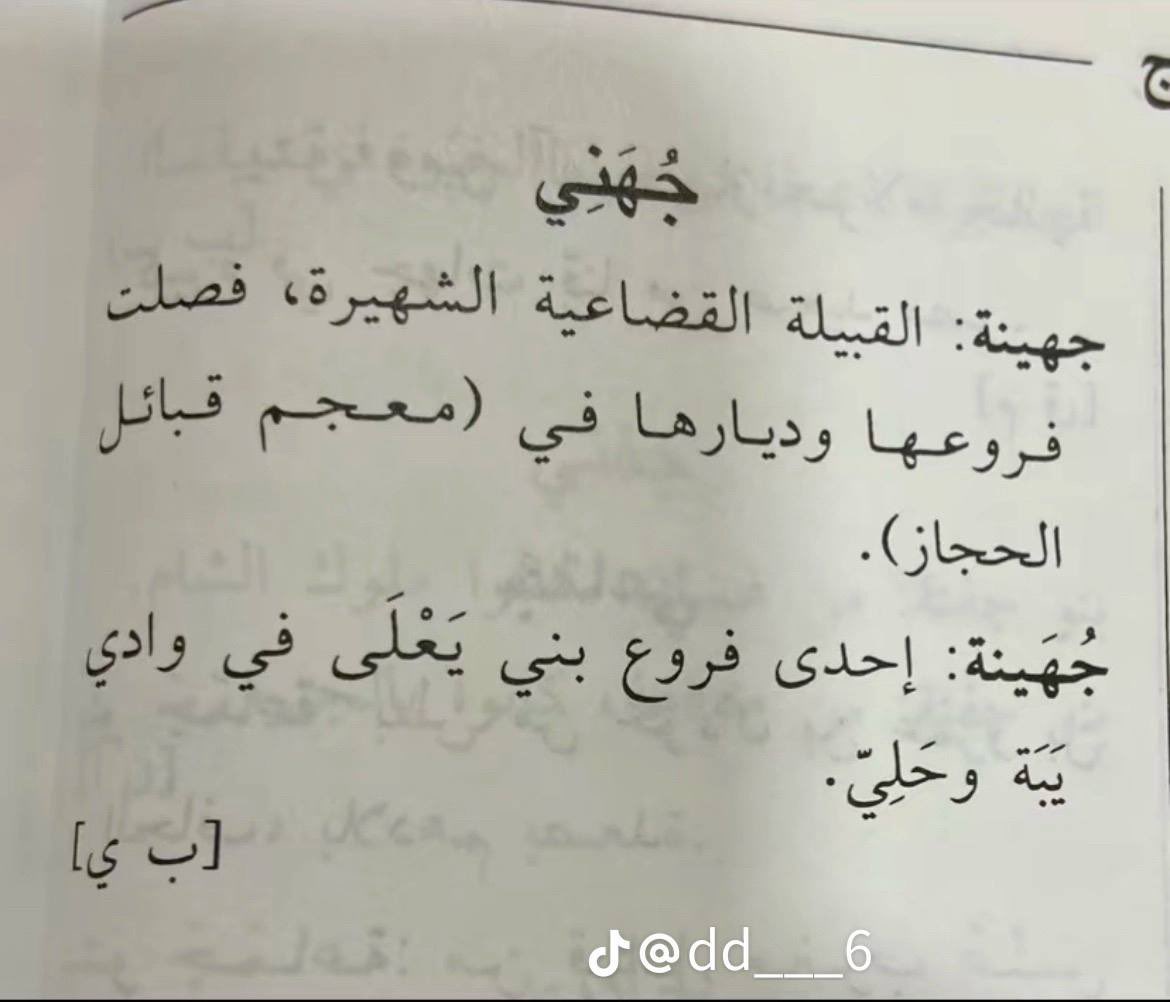 ج
جُهَنِي
جهينة: القبيلة القضاعية الشهيرة، فصلت
فروعها وديارها في (معجم قبائل
الحجاز).
جُهَينة: إحدى فروع بني يَعْلَى في وادي
يَبَة وحَلِيّ.
[ب ي]
@dd___6